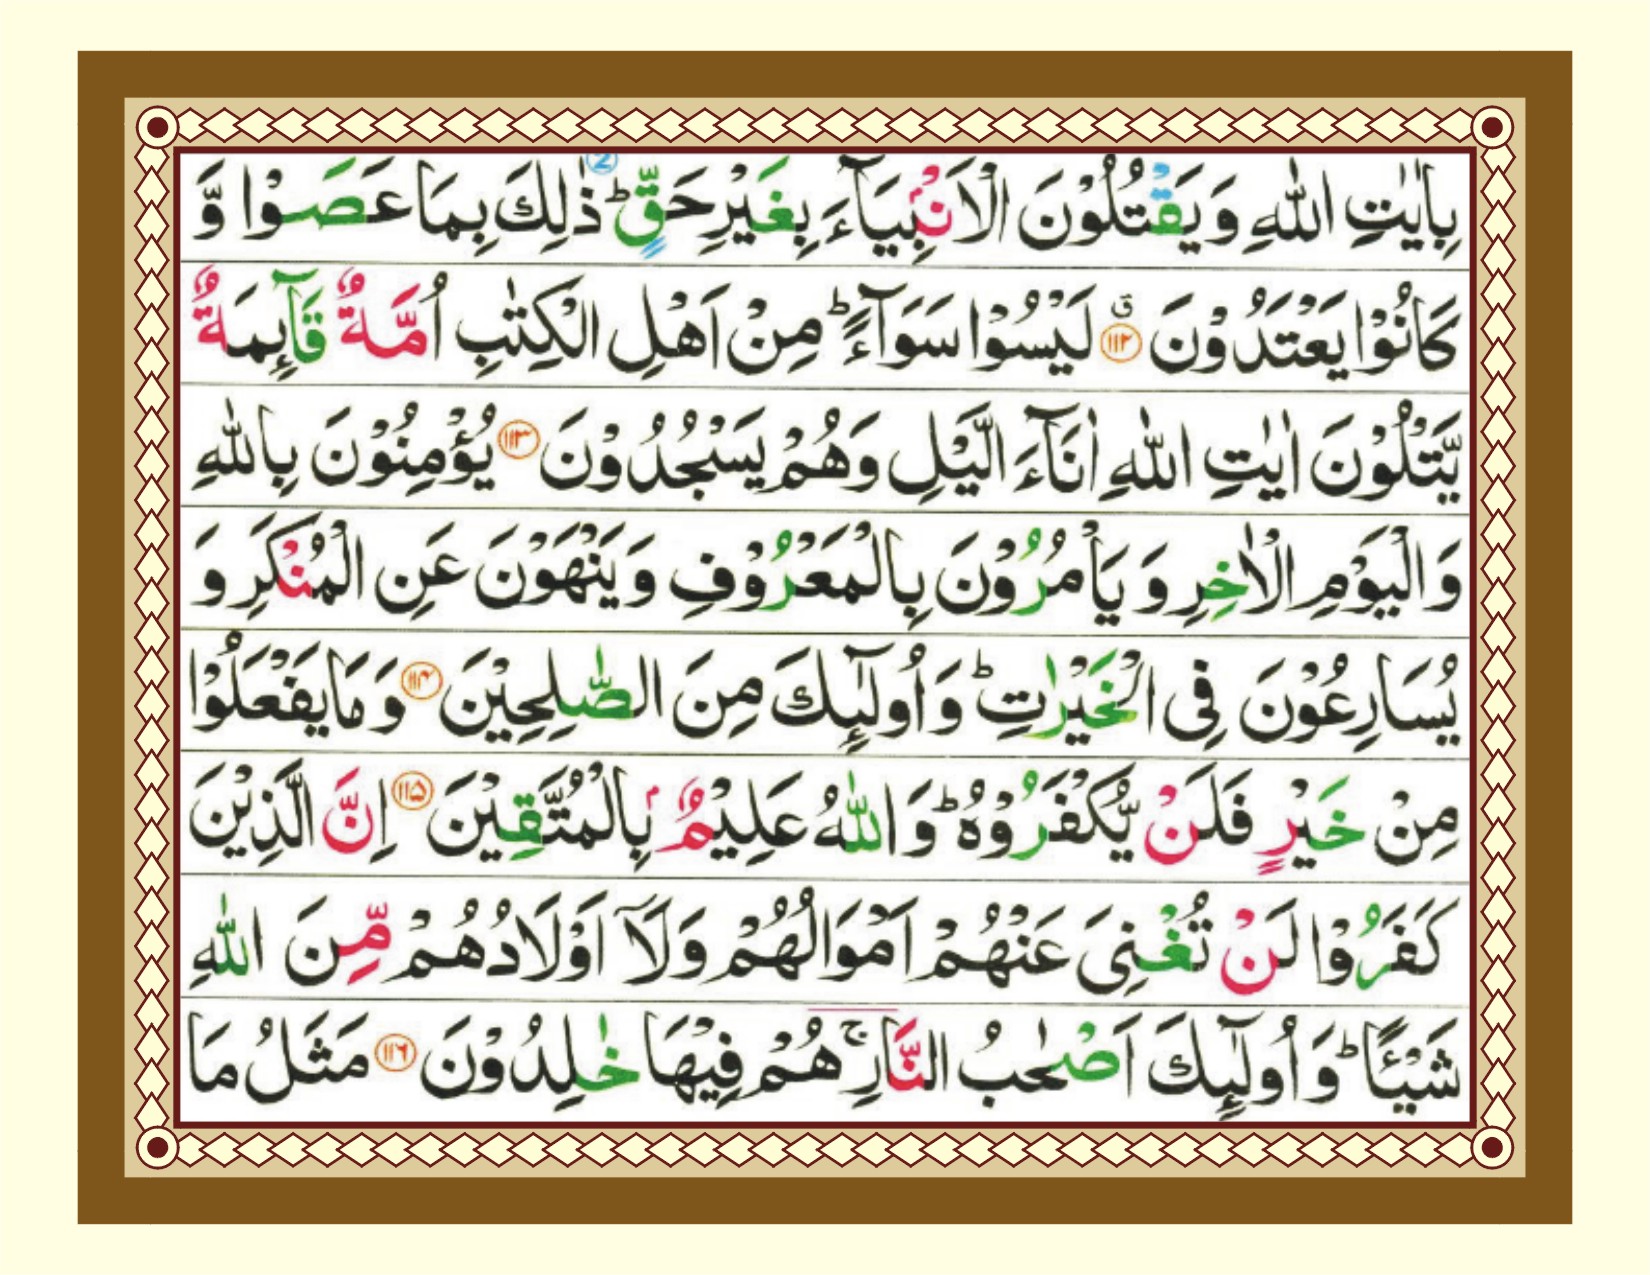 بِاٰيٰتِ اللّٰهِ وَيَقْتُلُوْنَ الْاَنْۢبِيَآءَ بِغَيْرِحَقٍّ ؕ ذٰلِكَ بِمَا عَصَوْا وَّ
كَانُوْا يَعْتَدُوْنَ ۝۱۱۲ ق لَيْسُوْا سَوَآءً ؕ مِنْ اَهْلِ الْكِتٰبِ اُمَّةٌ قَآئِمَةٌ
يَّتْلُوْنَ اٰيٰتِ اللّٰهِ اٰنَآءَ الَّيْلِ وَهُمْ يَسْجُدُوْنَ ۝۱۱۳ يُؤْمِنُوْنَ بِاللّٰهِ
وَالْيَوْمِ الْاٰخِرِ وَ يَاْمُرُوْنَ بِالْمَعْرُوْفِ وَيَنْهَوْنَ عَنِ الْمُنْكَرِ وَ
يُسَارِعُوْنَ فِى الْخَيْرٰتِ ؕ وَاُولٰٓئِكَ مِنَ الصّٰلِحِيْنَ ۝۱۱۴ وَمَا يَفْعَلُوْا
مِنْ خَيْرٍ فَلَنْ يُّكْفَرُوْهُ ؕ وَاللّٰهُ عَلِيْمٌۢ بِالْمُتَّقِيْنَ ۝۱۱۵ اِنَّ الَّذِيْنَ
كَفَرُوْا لَنْ تُغْنِىَ عَنْهُمْ اَمْوَالُهُمْ وَلَاۤ اَوْلَادُهُمْ مِّنَ اللّٰهِ
شَيْـًٔا ؕ وَاُولٰٓئِكَ اَصْحٰبُ النَّارِ ۚ هُمْ فِيْهَا خٰلِدُوْنَ ۝۱۱۶ مَثَلُ مَا